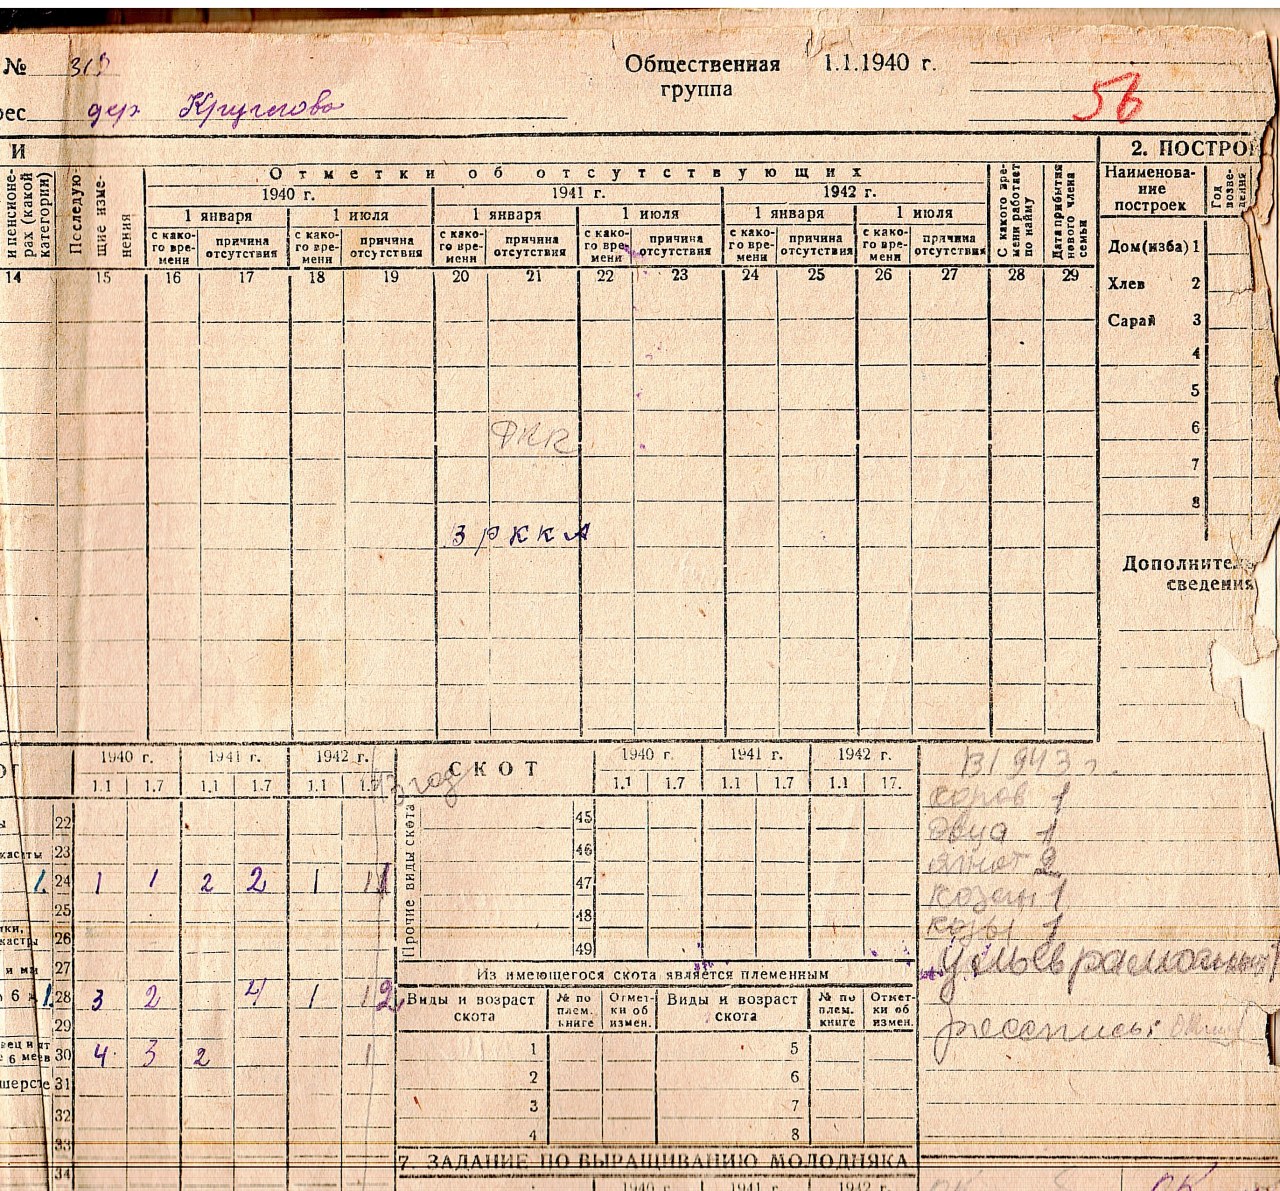 № 313 Общественная 1.1.1940 г.
группа 56
рес дер.
И 2. ПОСТРО
Отметки об отсутствующих
1940 г. 1941 г. 1942 г.
1 января 1 июля 1 января 1 июля 1 января 1 июля
и пенсионерах (какой категории)
Последующие изменения
с какого времени причина отсутствия с какого времени причина отсутствия с какого времени причина отсутствия с какого времени причина отсутствия с какого времени причина отсутствия с какого времени причина отсутствия
С какого времени работает по найму
Дата прибытия нового члена семьи
Наименование построек
Год возведения
14 15 16 17 18 19 20 21 22 23 24 25 26 27 28 29
Дом(изба) 1
Хлев 2
Сарай 3
4
5
6
7
8
РКК
В РККА
Дополнитель
сведения
1940 г. 1941 г. 1942 г.
1.1 1.7 1.1 1.7 1.1
43 год
22
23
24 1 1 2 2 1 1
25
26
27
28 3 2 4 1 1 2
29
30 4 3 2 1
31
32
33
34
СКОТ 1940 г. 1941 г. 1942 г.
1.1 1.7 1.1 1.7 1.1 17.
Прочие виды скота
45
46
47
48
49
Из имеющегося скота является племенным
Виды и возраст скота № по плем. книге Отметки об измен. Виды и возраст скота № по плем. книге Отметки об измен.
1 5
2 6
3 7
4 8
7. ЗАДАНИЕ ПО ВЫРАЩИВАНИЮ МОЛОДНЯКА
1940 г. 1941 г. 1942 г.
В 1943 г.
коров 1
Овца 1
ягнат 2
козы 1